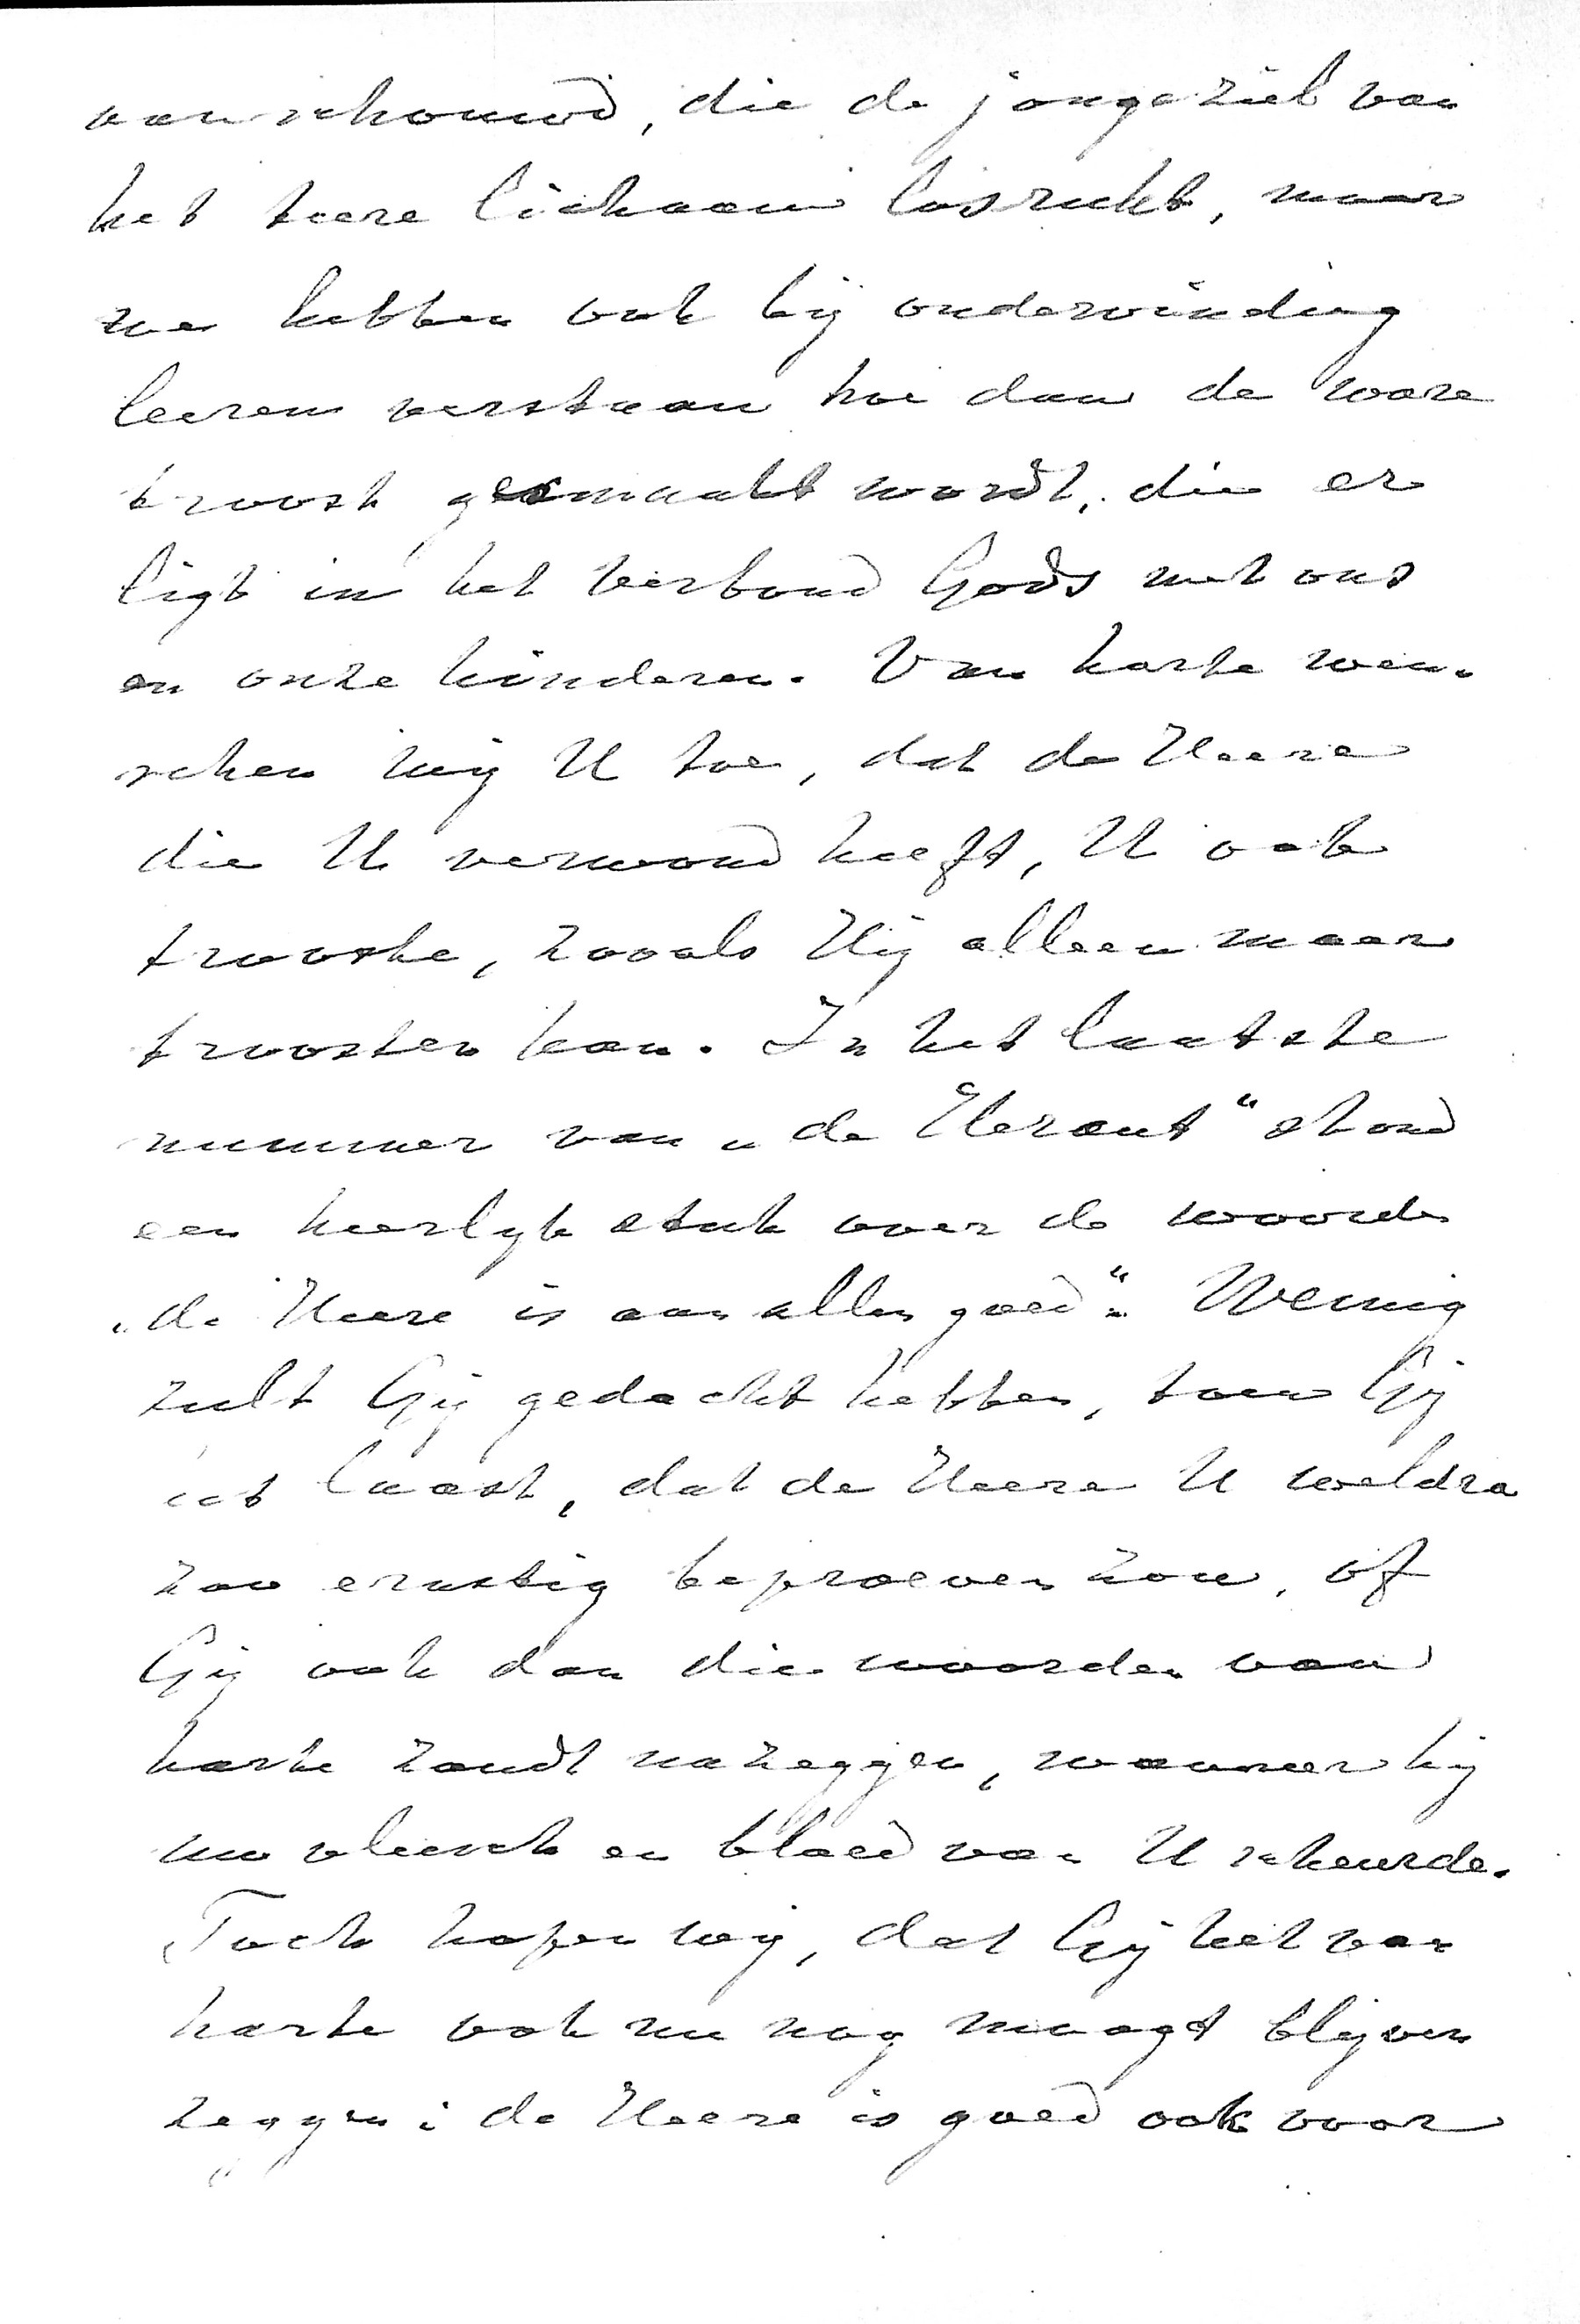 aanschouwd, die de jonge ziel van
het teere lichaam losrukt, maar
we hebben ook bij ondervinding
leeren verstaan hoe dan de ware
troost gesmaakt wordt, die er
ligt in het Verbond Gods met ons
en onze kinderen. Van harte wen-
schen wij U toe, dat de Heere
die U verwond heeft, U ook
trooste, zooals Hij alleen maar
troosten kan. In het laatste
nummer van „de Heraut“ stond
een heerlijk stuk over de woorden
„de Heere is aan allen goed“. Weinig
zult Gij gedacht hebben, toen Gij
het laast, dat de Heere U weldra
zoo ernstig beproeven zou, of
Gij ook dan die woorden van
harte zoudt nazeggen, wanneer hij
uw vleesch en bloed van U scheurde.
Toch hopen wij, dat Gij het van
harte ook nu nog moogt blijven
zeggen: de Heere is goed ook voor